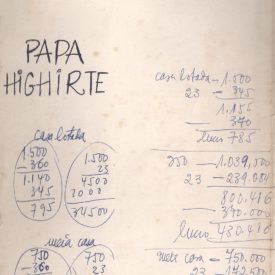 PAPA
HIGHIRTE
casa lotada
1.500
360
1.140
345
795
1.500
23
4500
3000
34500
meia casa
750
360
750
23
casa lotada — 1.500
23 — 345
1.155
— 370
lucro 785
750 — 1.039.500
23 — 239.084
800.416
— 370.000
lucro 430.416
meia casa — 750.000
23 — 172.500